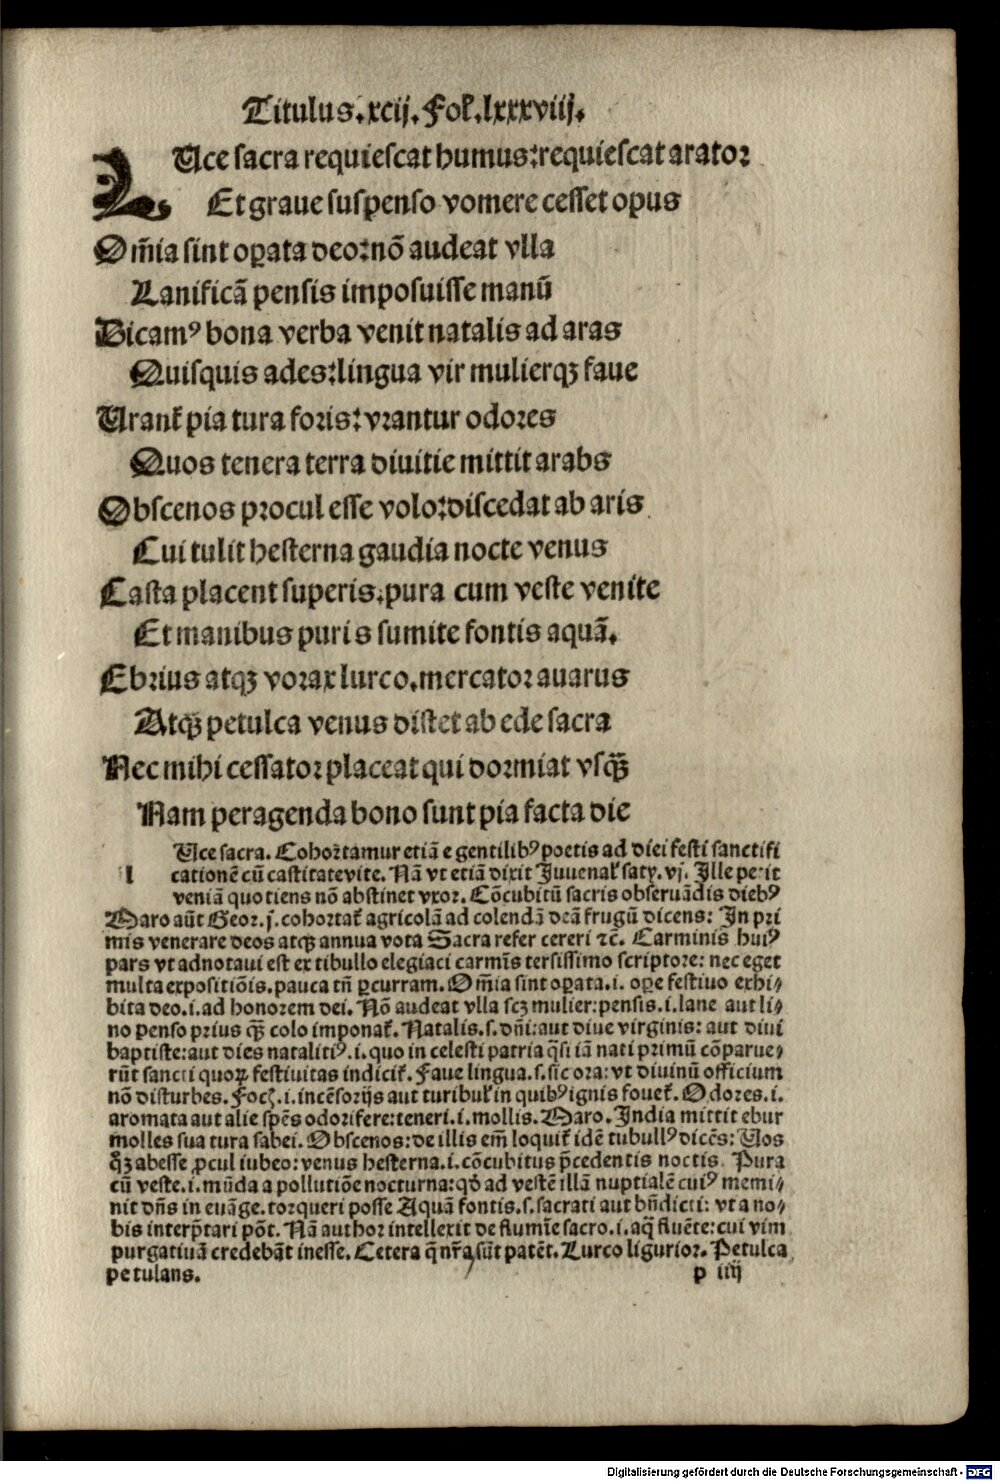 Titulus.xcij.Fol.lxxxviij.
LUce sacra requiescat humus:requiescat arator
Et graue suspenso vomere cesset opus
Om̄ia sint oꝑata deo:nō audeat vlla
Lanificā pensis imposuisse manū
Dicamꝰ bona verba venit natalis ad aras
Quisquis ades:lingua vir mulierqꝫ faue
Urant̃ pia tura foris:vrantur odores
Quos tenera terra diuitie mittit arabs
Obscenos procul esse volo:discedat ab aris
Cui tulit hesterna gaudia nocte venus
Casta placent superis.pura cum veste venite
Et manibus puris sumite fontis aquā.
Ebrius atqꝫ vorax lurco.mercator auarus
Atqꝫ petulca venus distet ab ede sacra
Nec mihi cessator placeat qui dormiat vsqꝫ̄
Nam peragenda bono sunt pia facta die
l Uce sacra. Cohortamur etiā e gentilibꝰ poetis ad diei festi sanctifi
cationē cū castitate vite. Nā vt etiā dixit Juuenal̃ saty. vj. Ille perit
veniā quotiens nō abstinet vxor. Cōcubitū sacris obseruādis diebꝰ
Maro aūt Geor.j.cohortat̃ agricolā ad colendā deā frugū dicens: In pri
mis venerare deos atqꝫ annua vota Sacra refer cereri ⁊c̄. Carminis huiꝰ
pars vt adnotaui est ex tibullo elegiaci carmīs tersissimo scriptore: nec eget
multa expositiōis.pauca tn̄ ꝑcurram. Om̄ia sint oꝑata.i. oꝑe festiuo exhi⸗
bita deo.i.ad honorem dei. Nō audeat vlla scꝫ mulier:pensis.i.lane aut li⸗
no ꝑenso prius qꝫ̄ colo imponat̃. Natalis.s.dn̄i:aut diue virginis: aut diui
baptiste:aut dies natalitiꝰ.i.quo in celesti patria q̄si iā nati primū cōparue⸗
rūt sancti quoꝝ festiuitas indicit̃. Faue lingua.s.sic ora: vt diuinū officium
nō disturbes. Focꝭ.i.incēsorijs aut turibul̃ in quibꝰ ignis fouet̃. Odores.i.
aromata aut alie spēs odorifere:teneri.i.mollis. Maro. India mittit ebur
molles sua tura sabei. Obscenos: de illis em̄ loquit̃ idē tubullꝰ dicēs: Uos
qꝫ abesse ꝓcul iubeo: venus hesterna.i.cōcubitus p̄cedentis noctis. Pura
cū veste.i.mūda a pollutiōe nocturna: qđ ad vestē illā nuptialē cuiꝰ memi⸗
nit dn̄s in euāge.torqueri posse Aquā fontis.s.sacrati aut bn̄dicti: vt a no⸗
bis interp̄tari pōt. Nā author intellexit de flumīe sacro.i.aq̄ fluēte: cui vim
purgatiuā credebāt inesse. Cetera q̄ nr̄a sūt patēt. Lurco ligurior. Petulca
petulans.
p iiij
Digitalisierung gefördert durch die Deutsche Forschungsgemeinschaft - DFG